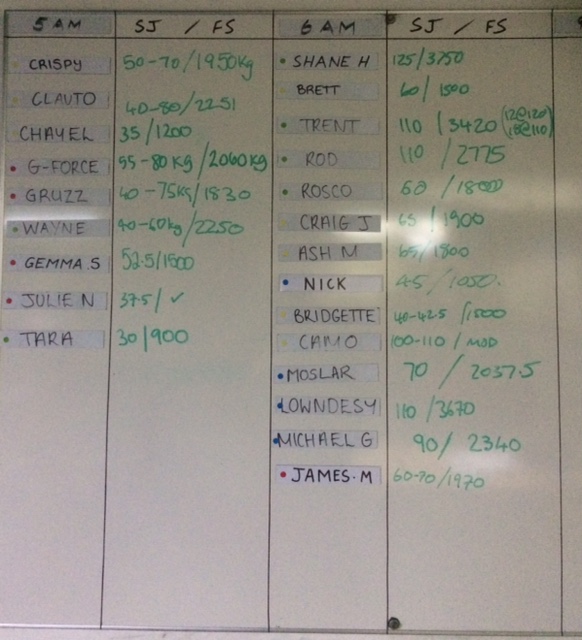 5 AM SJ / FS
CRISPY 50-70/1950kg
CLAUTO 40-80/2251
CHAYEL 35/1200
G-FORCE 55-80KG/2060KG
GRUZZ 40-75KG/1830
WAYNE 40-60kg/2250
GEMMA.S 52.5/1500
JULIE N 37.5/✓
TARA 30/900
6 AM SJ / FS
SHANE H 125/3750
BRETT 60/1500
TRENT 110/3420 (12@120 18@110)
ROD 110/2775
ROSCO 60/18000
CRAIG J 65/1900
ASH M 65/1800
NICK 45/1050.
BRIDGETTE 40-42.5/1500
CAMO 100-110/MOD
MOSLAR 70/2037.5
LOWNDESY 110/3670
MICHAEL G 90/2340
JAMES.M 60-70/1970